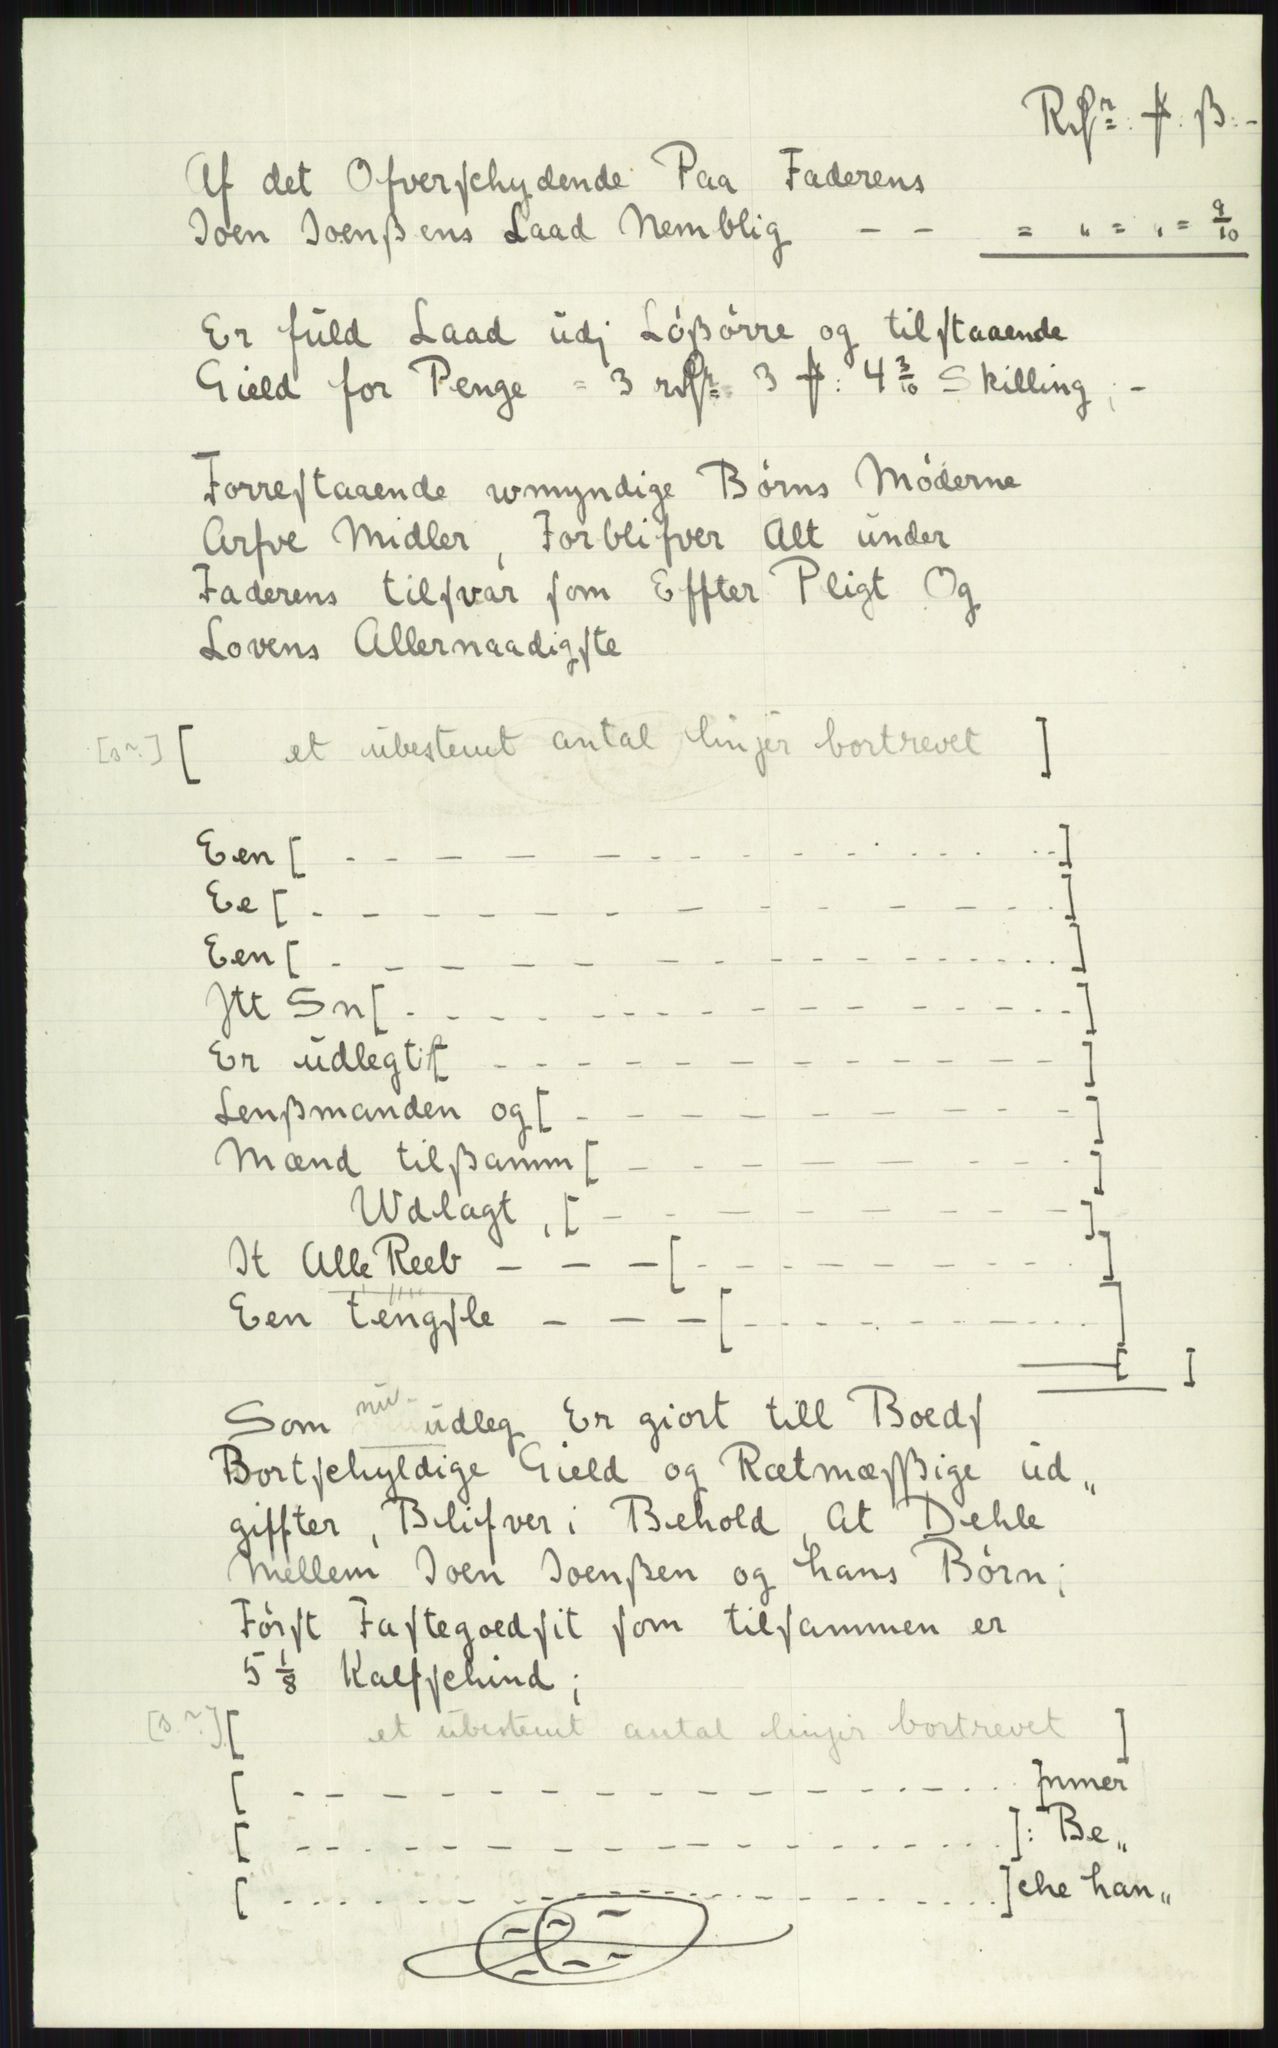 Rdr: ₰: ß: -
Af det Ofverschydende Paa Faderens
Joen Joenßens Laad Nemblig - - = " = " = 9/10
Er füld Laad üdj Lößörre og tilstaaende
Gield for Penge = 3 rdr 3 ₰: 4 3/10 Skilling; -
Forrestaaende wmyndige Börns Möderne
Arfve Midler, Forblifver Alt ünder
Faderens tilsvar som Effter Pligt Og
Lovens Allernaadigste
[s.r.] [ et übestemt antal linjer bortrevet ]
Een [ - - - - - - - - - - - - - ]
Ee [ - - - - - - - - - - - - - ]
Een [ - - - - - - - - - - - - - ]
Jtt Sn [ - - - - - - - - - - - - - ]
Er üdlegt [ - - - - - - - - - - - ]
Lenßmanden og [ - - - - - - - - - ]
Mænd tilßamm [ - - - - - - - - - ]
Wdlagt, [ - - - - - - - - - ]
It Alle Reeb - - - [ - - - - - - - - ]
Een tengsle - - - [ - - - - - - - - ]
[ ]
Som nü üdleg Er giort till Boeds
Bortschyldige Gield og Rætmæsßige üd„
giffter, Blifver i Behold, At Dehle
Mellem Joen Joenßen og hans Börn;
Först Fastegoedsit som tilsammen er
5 1/8 Kalfschind;
[s.r.] [ et übestemt antal linjer bortrevet ]
[ - - - - - - - - - - - - - ]mmer
[ - - - - - - - - - - - - - ]: Be„
[ - - - - - - - - - - - - - ]che han„